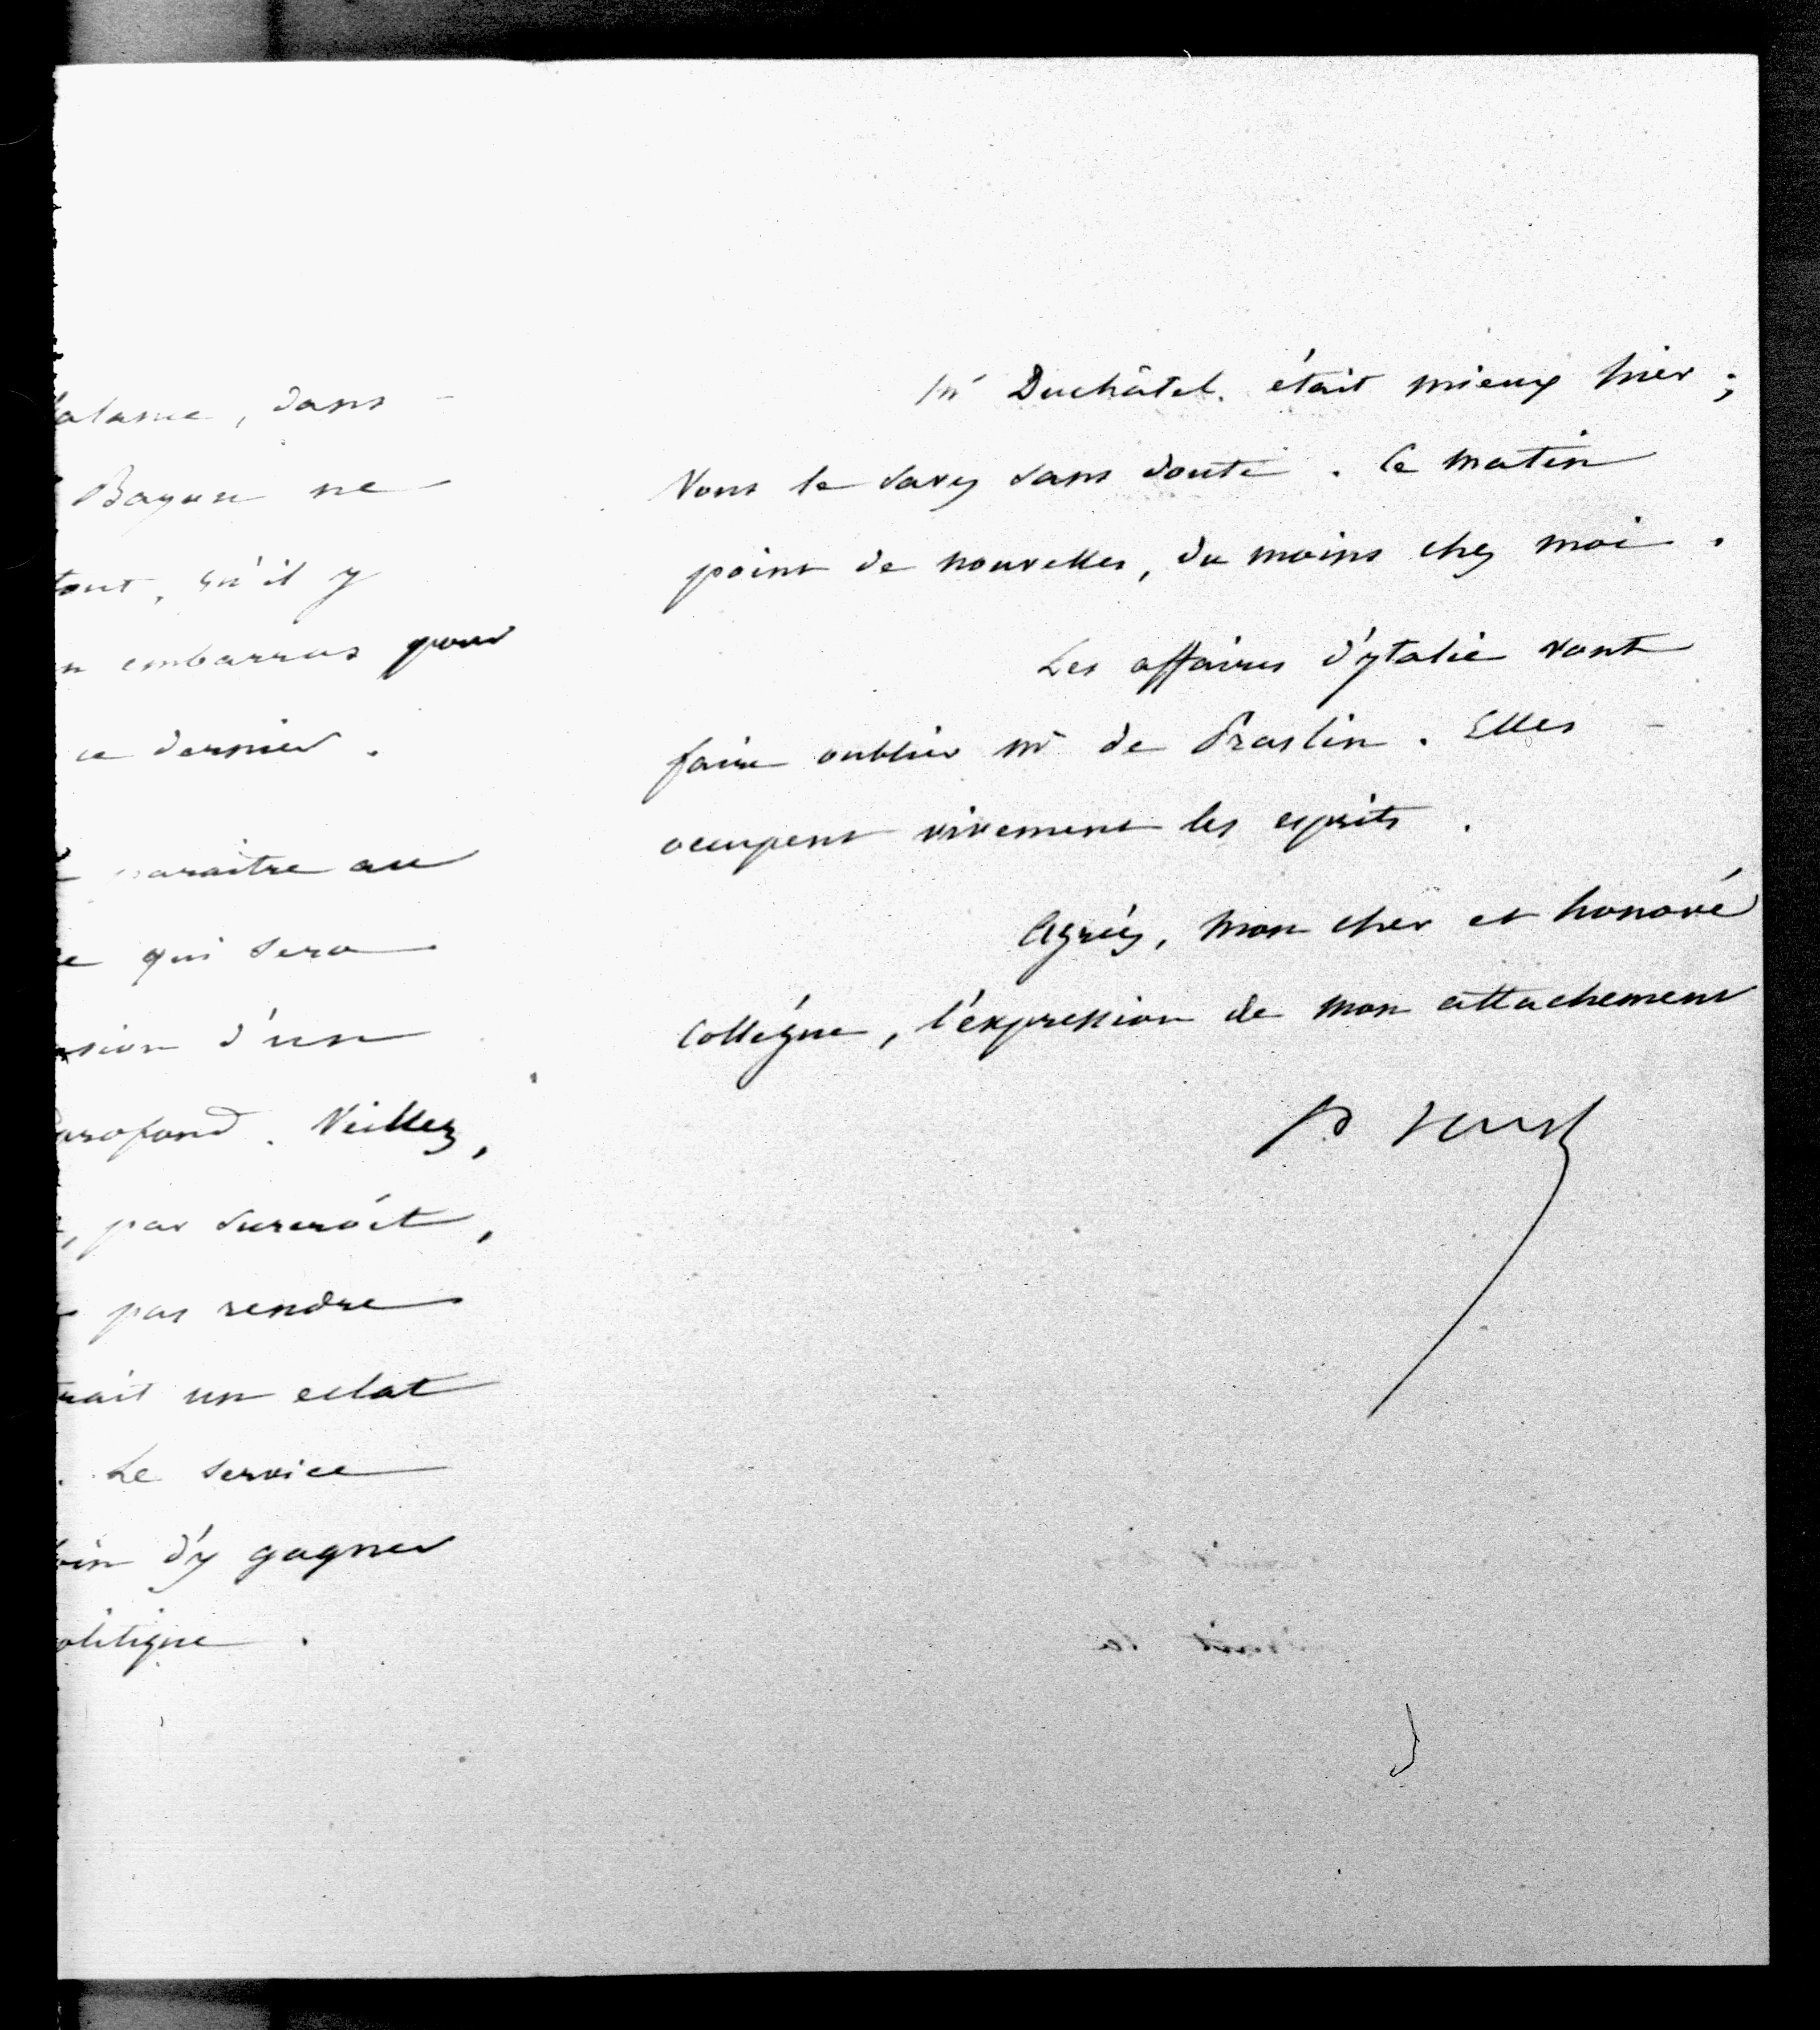 dans
Bayeu ne
tout, qu'il y
embarras pour
ce dernier.
paraître au
qui sera
d'un
profond. Veillez,
par surcroît,
pas rendre
un eclat
Le service
d'y gagner
politique.
Mr Duchâtel. était mieux hier;
Vous le savez sans doute. Ce matin
point de nouvelles, du moins chez moi.
Les affaires d'ytalie vont
faire oublier Mr de Praslin. Elles
occupent vivement les esprits.
Agréez, mon cher et honoré
Collégue, l'expression de mon attachement